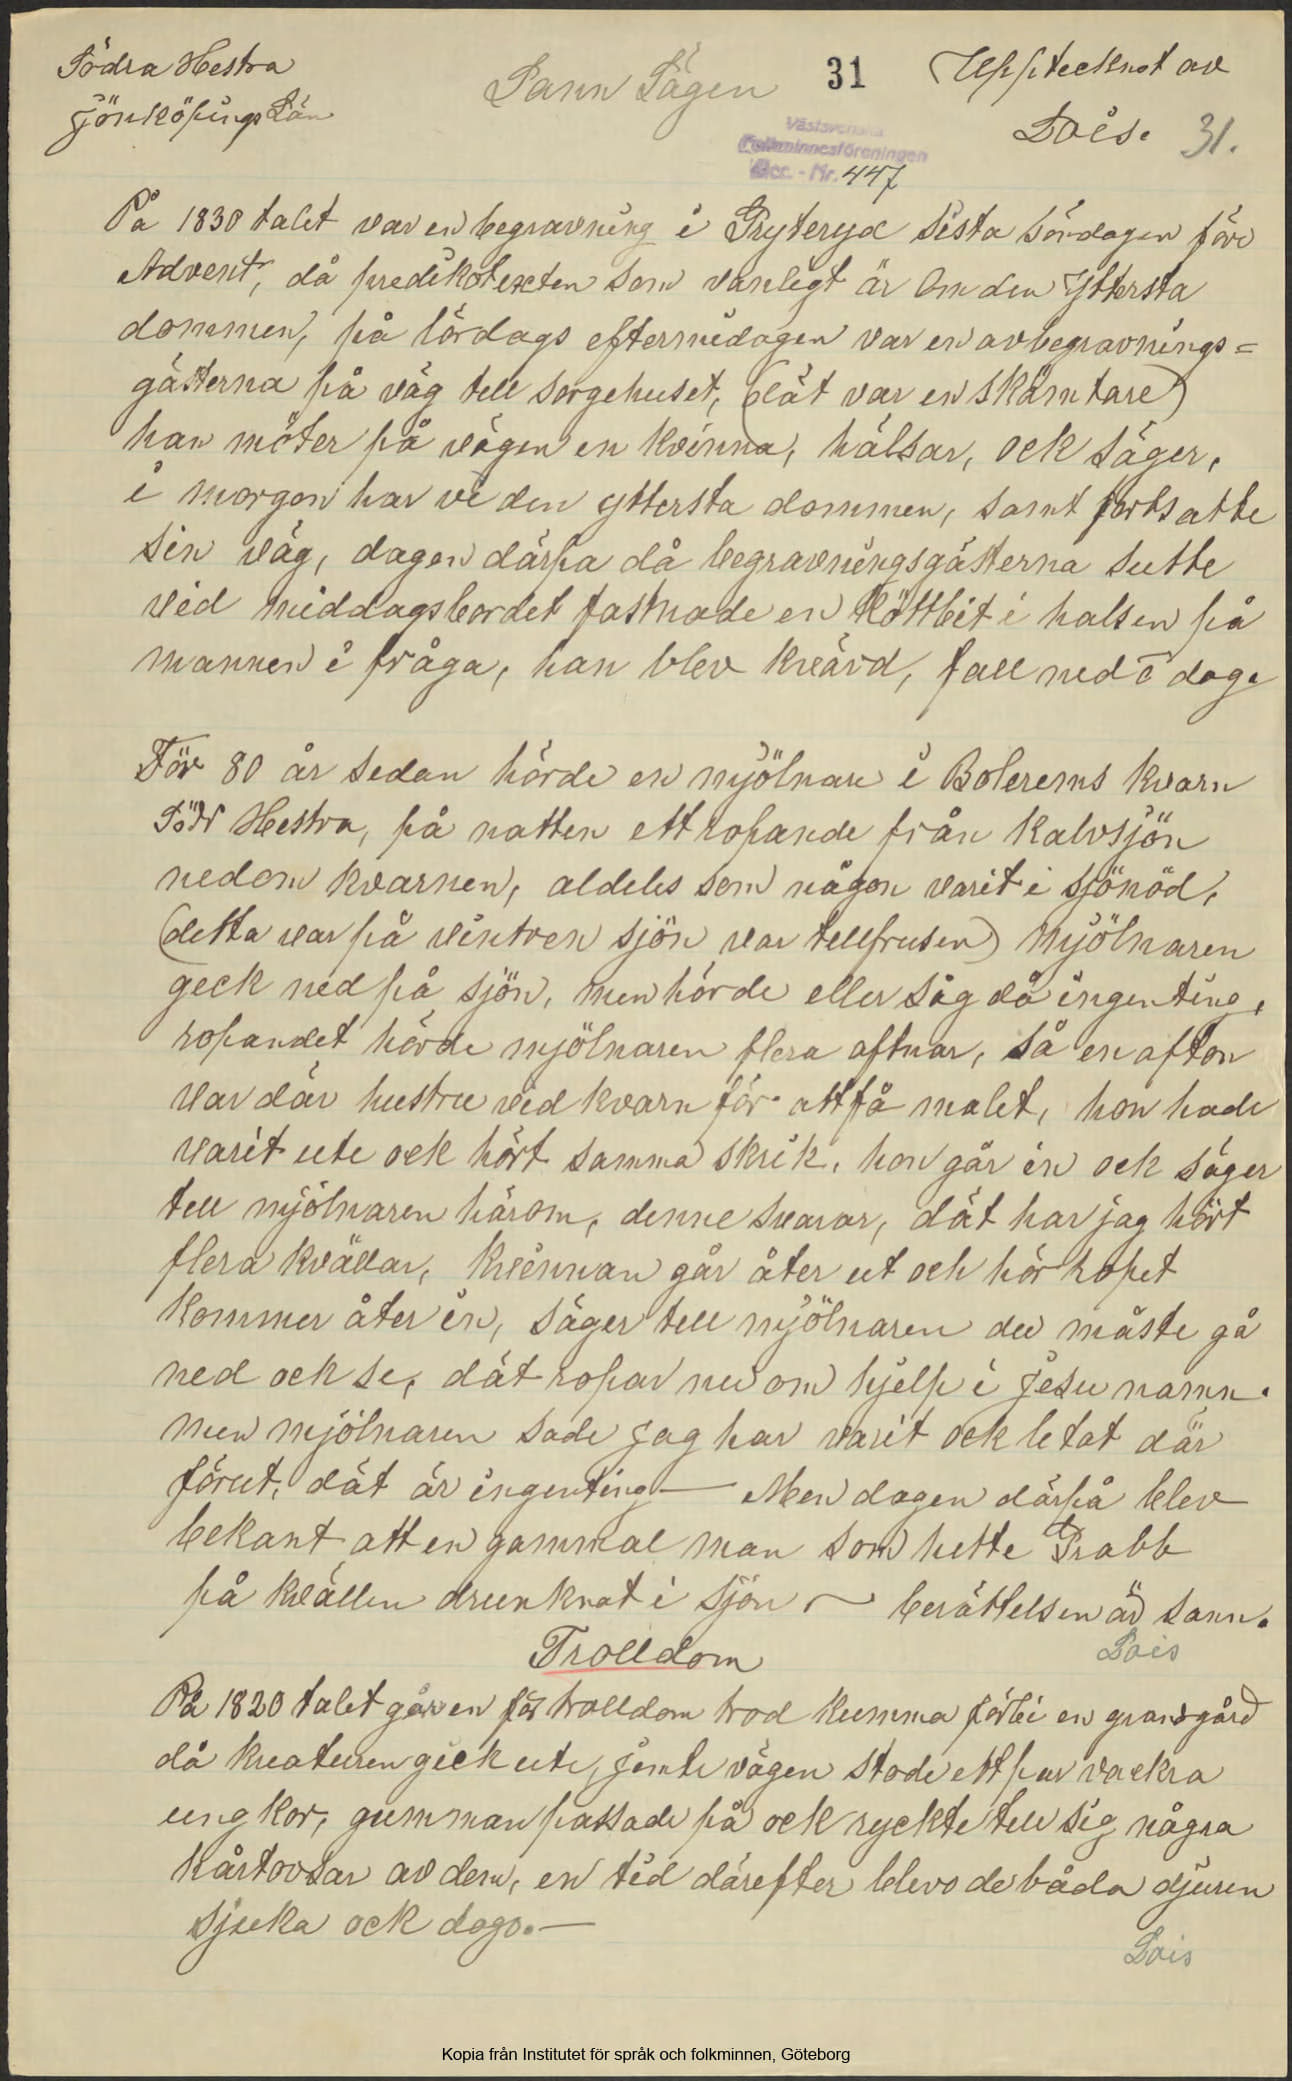 Södra Hestra
Jönköpings Län
Sann Sägen
31
Upptecknat av
Lois.
31.
Västsvenska
Folkminnesföreningen
Acc. - Nr. 447
På 1830 talet var en begravning i Gryteryd sista söndagen före
Advent, då predikotexten som vanligt är om den yttersta
dommen, på lördags eftermidagen var en av begravnings=
gästerna på väg tell sorgehuset, (dät var en skämtare)
han möter på vägen en kvinna, hälsar, ock säger,
i morgon har vi den yttersta dommen, samt fortsatte
sin väg, dagen därpa då begravningsgästerna sutte
vid middagsbordet fastnade en köttbit i halsen på
mannen i fråga, han blev kvävd, fall ned ō dog.
För 80 år sedan hörde en mjölnare i Bolerems kvarn
Södr Hestra, på natten ett ropande från Kalvsjön
nedom kvarnen, aldeles som någon varit i sjönöd,
(detta var på vintren sjön var tellfrusen) Mjölnaren
geck ned på sjön, men hörde eller såg då ingenting,
ropandet hörde mjölnaren flera aftnar, så en afton
var där hustru vid kvarn för att få malet, hon hade
varit ute ock hört samma skrik, hon går in ock säger
tell mjölnaren härom, denne svarar, dät har jag hört
flera kvällar, kvinnan går åter ut och hör ropet
kommer åter in, säger tell mjölnaren du måste gå
ned ock se, dät ropar nu om hjelp i Jesu namn.
men mjölnaren sade jag har varit ock letat där
förut, dät är ingenting — Men dagen därpå blev
bekant att en gammal man som hette Prabb
på kvällen drunknat i sjön ~ berättelsen är sann.
Lois
Trolldom
På 1820 talet går en för trolldom trod kumma förbi en granngård
då kreaturen geck ute, jemte vägen stode ett par vackra
ung kor, gumman passade på ock ryckte tell sig några
hårtovsar av dem, en tid därefter blevo de båda djuren
sjuka ock dogo. —
Lois
Kopia från Institutet för språk och folkminnen, Göteborg